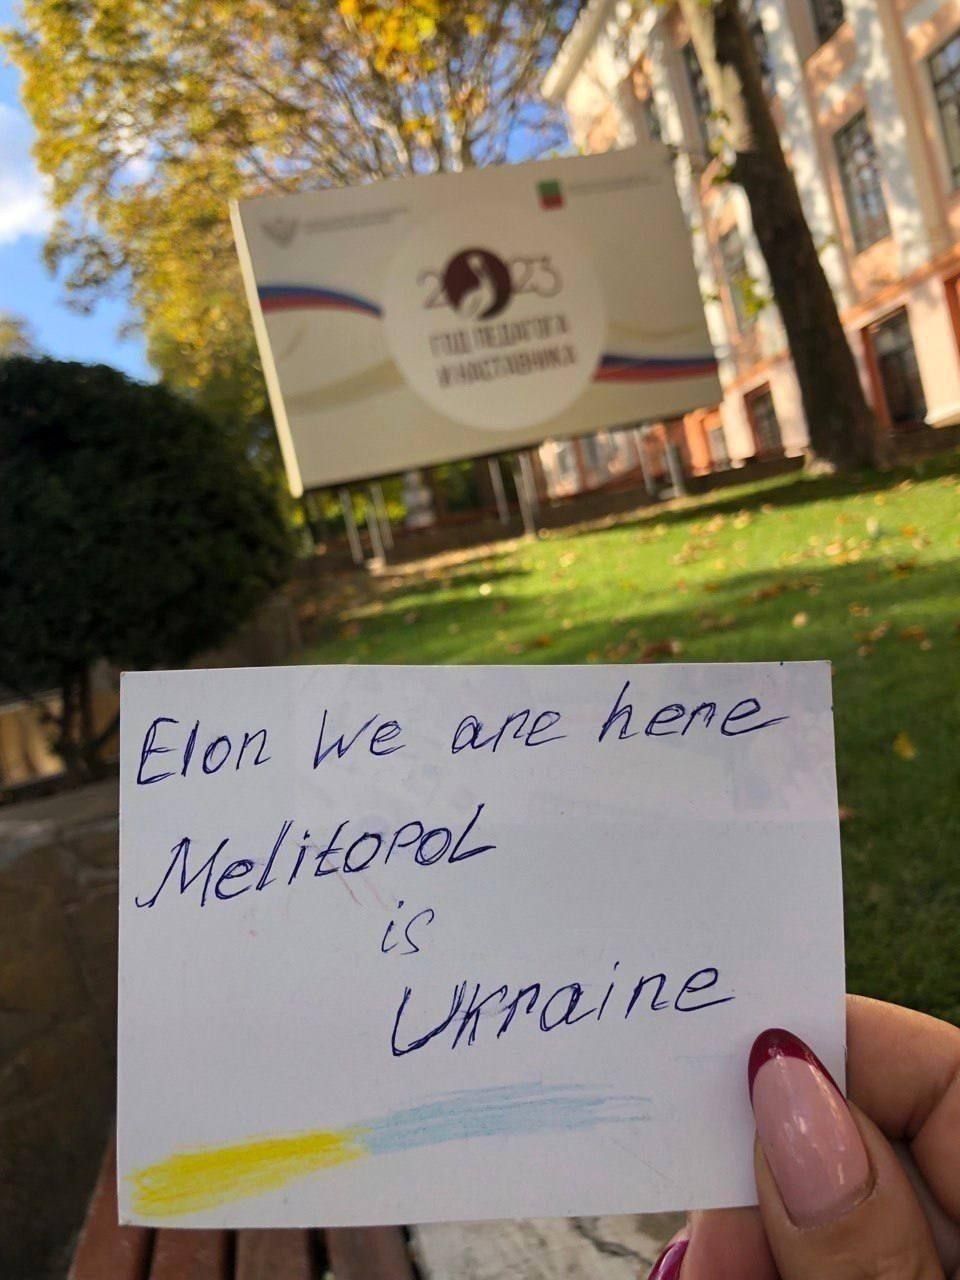 2023
ГОД ПЕДАГОГА
И НАСТАВНИКА
Elon We are here
Melitopol
is
Ukraine